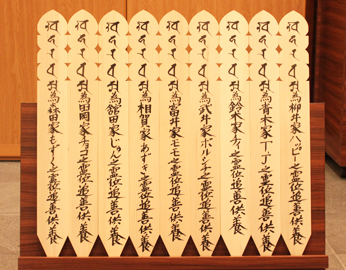 為柳井家ハッピー之霊位追善供養
為青木家之霊位追善供養
為鈴木家チィ之霊位追善供養
為武井家ポルシェ之霊位追善供養
為富井家モモ之霊位追善供養
為相賀家あずき之霊位追善供養
為舘田家じゅん之霊位追善供養
為田岡家チョコ之霊位追善供養
為森田家もずく之霊位追善供養